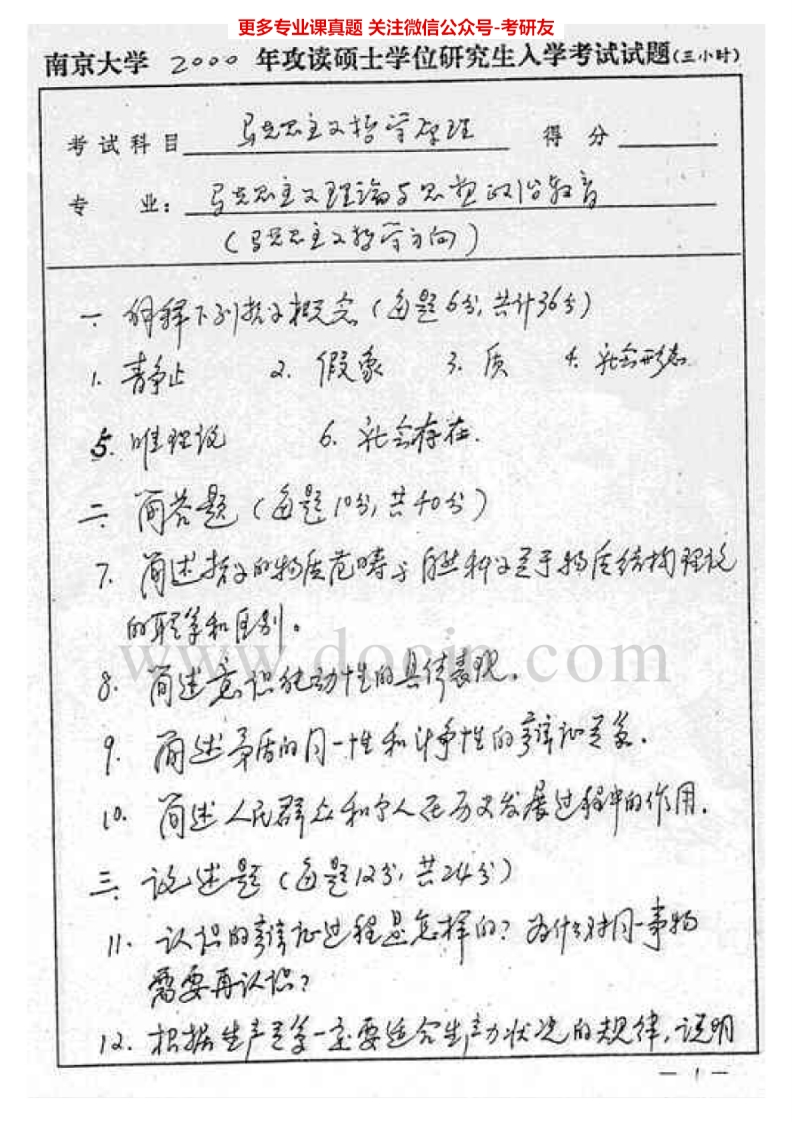 更多专业课真题 关注微信公众号-考研友
南京大学 2000 年攻读硕士学位研究生入学考试试题(三小时)
考试科目 马克思主义哲学原理 得分
专 业: 马克思主义理论与思想政治教育
(马克思主义哲学方向)
一. 解释下列哲学概念(每题6分,共计36分)
1. 静止 2. 假象 3. 质 4. 社会形态
5. 唯理论 6. 社会存在.
二. 简答题(每题10分,共40分)
7. 简述哲学的物质范畴与自然科学关于物质结构理论
的联系和区别。
www.docin.com
8. 简述意识能动性的具体表现.
9. 简述矛盾的同一性和斗争性的辩证关系.
10. 简述人民群众和个人在历史发展过程中的作用.
三. 论述题(每题12分,共24分)
11. 认识的辩证过程是怎样的?为什么对同一事物
需要再认识?
12. 根据生产关系一定要适合生产力状况的规律,说明
— 1 —